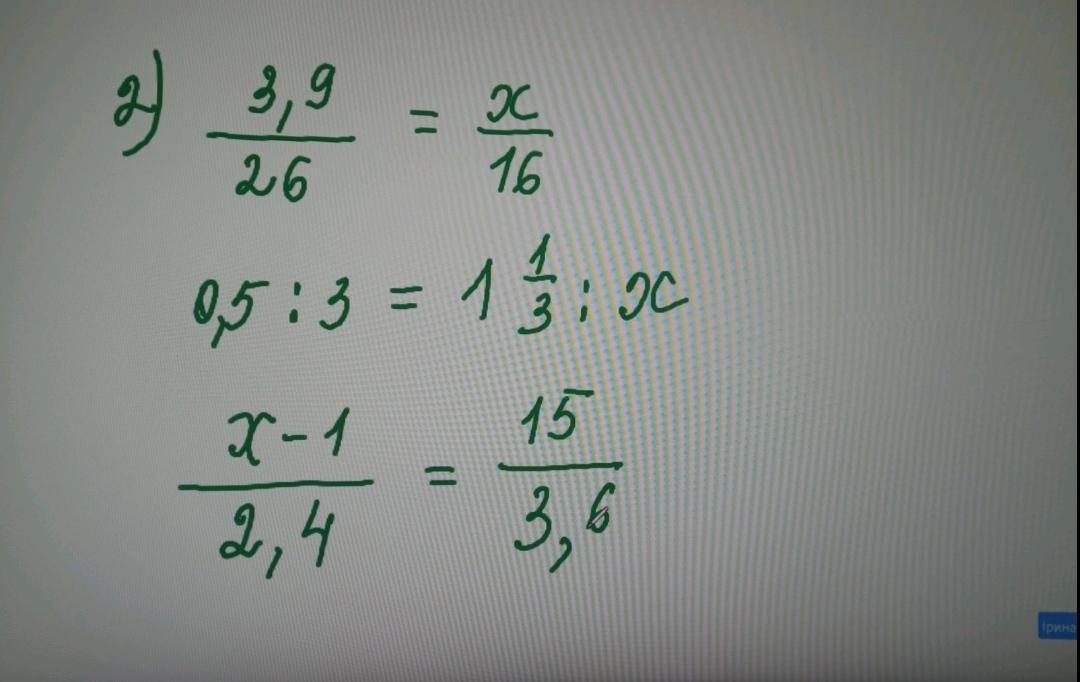 2) 3,9/26 = x/16
0,5 : 3 = 1 1/3 : x
x-1/2,4 = 15/3,6
Ірина